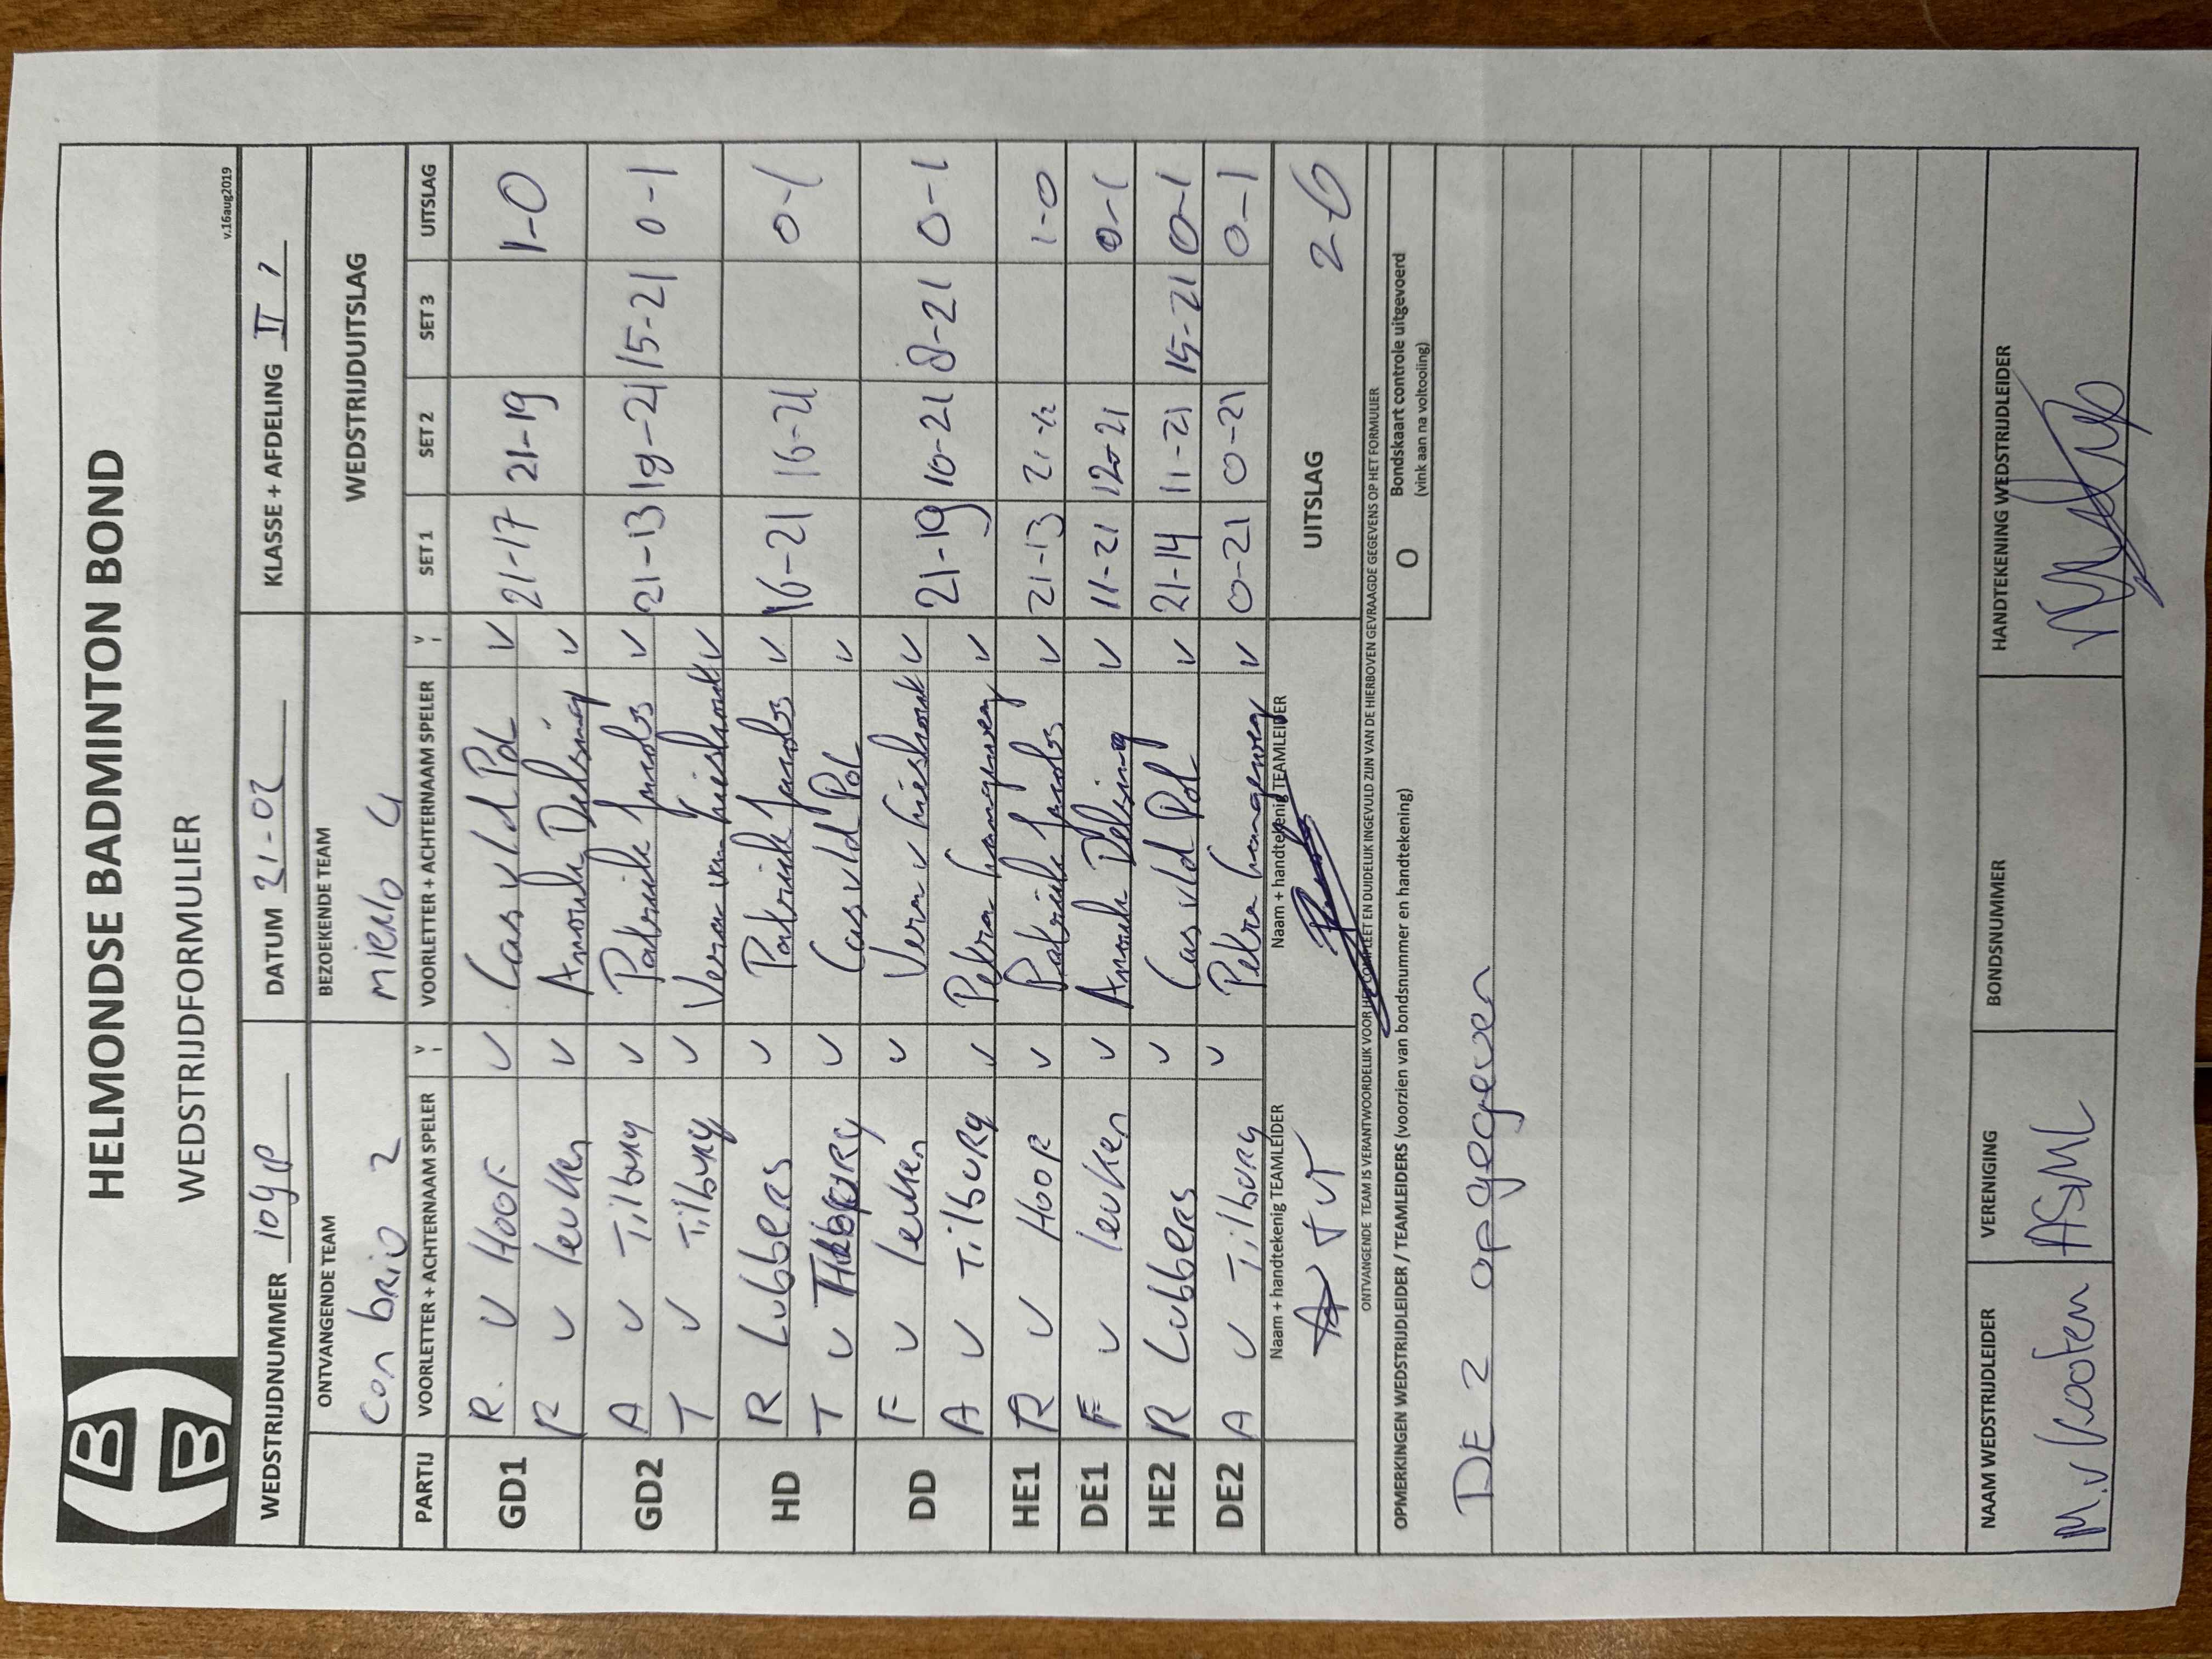 HELMONDSE BADMINTON BOND
WEDSTRIJDFORMULIER
v.16aug2019
WEDSTRIJDNUMMER DATUM 21-02 KLASSE + AFDELING II
ONTVANGENDE TEAM BEZOEKENDE TEAM WEDSTRIJDUITSLAG
Con brio 2 Mierlo
PARTIJ VOORLETTER + ACHTERNAAM SPELER VOORLETTER + ACHTERNAAM SPELER SET 1 SET 2 SET 3 UITSLAG
GD1 R. v Hoof v Cas v/d Pol v 21-17 21-19 1-0
v leuken v Anouk Delsing v
GD2 A v Tilburg v Patrick Jacobs v 21-13 19-21 15-21 0-1
T v Tilburg v Vera van v
HD R Lubbers v Patrick Jacobs v 16-21 16-21 0-1
T v Tilburg v Cas v/d Pol v
DD F v leuken v Vera v v 21-19 10-21 8-21 0-1
A v Tilburg v Petra Langeweg v
HE1 R v Hoof v Patrick Jacobs v 21-13 1-0
DE1 F v leuken v Anouk Delsing v 11-21 12-21 0-1
HE2 R Lubbers v Cas v/d Pol v 21-14 11-21 15-21 0-1
DE2 A v Tilburg v Petra Langeweg v 0-21 0-21 0-1
Naam + handtekenig TEAMLEIDER Naam + handtekenig TEAMLEIDER UITSLAG 2-6
TvT
ONTVANGENDE TEAM IS VERANTWOORDELIJK VOOR HET COMPLEET EN DUIDELIJK INGEVULD ZIJN VAN DE HIERBOVEN GEVRAAGDE GEGEVENS OP HET FORMULIER
OPMERKINGEN WEDSTRIJDLEIDER / TEAMLEIDERS (voorzien van bondsnummer en handtekening) O Bondskaart controle uitgevoerd
(vink aan na voltooling)
DE 2 opgegeven
NAAM WEDSTRIJDLEIDER VERENIGING BONDSNUMMER HANDTEKENING WEDSTRIJDLEIDER
M. v Kooten ASML